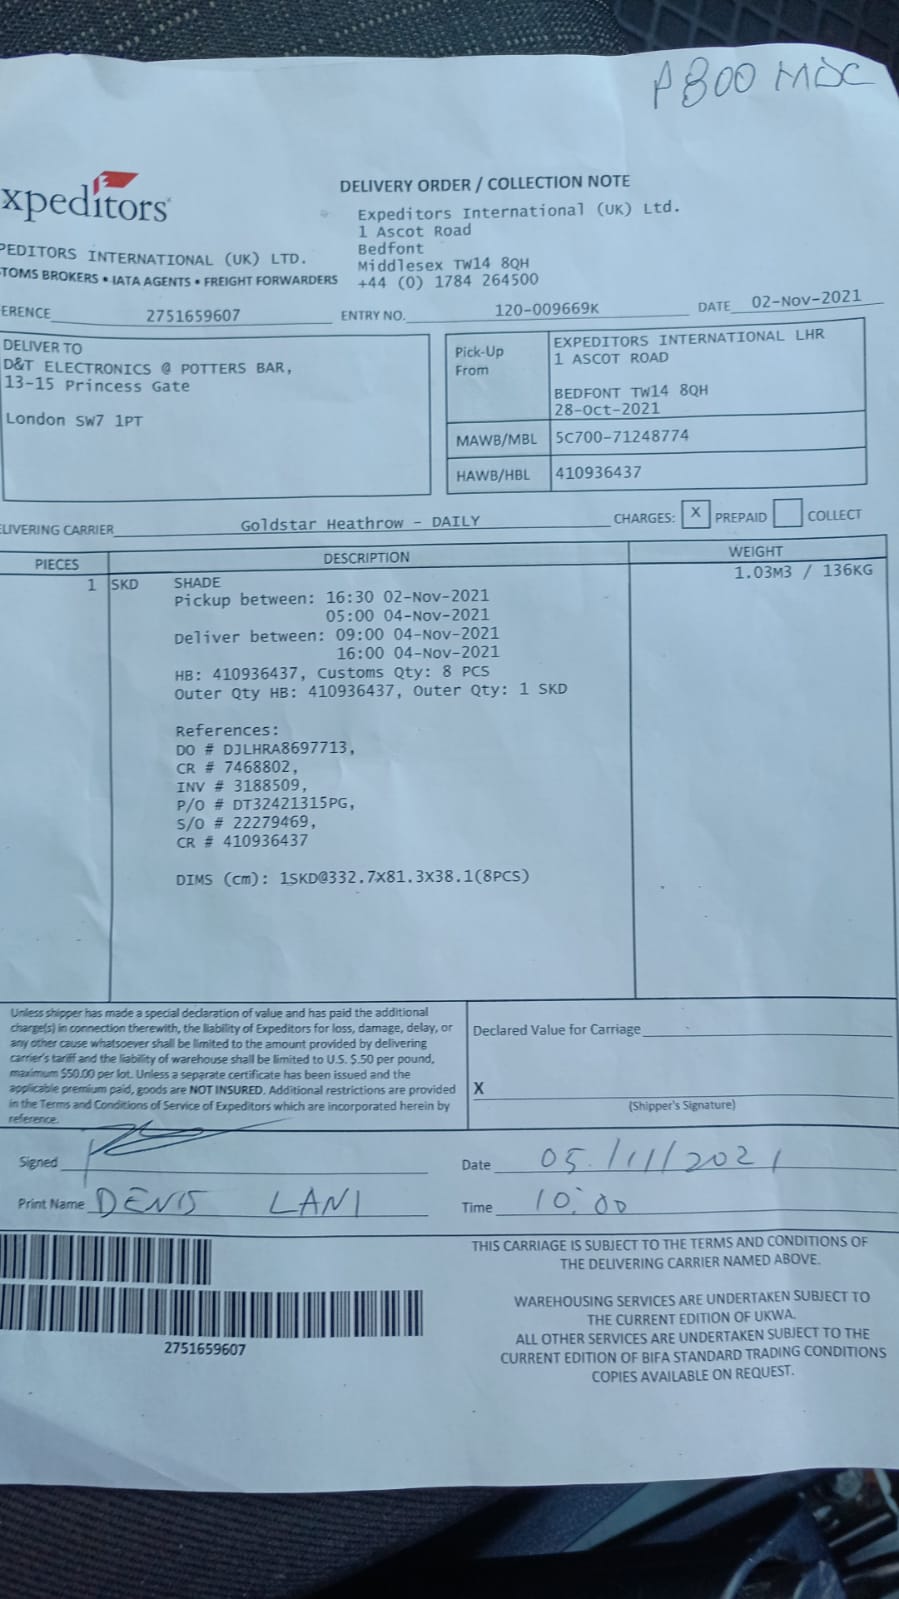 P800 MDC
xpeditors
DELIVERY ORDER / COLLECTION NOTE
Expeditors International (UK) Ltd.
1 Ascot Road
Bedfont
Middlesex TW14 8QH
+44 (0) 1784 264500
PEDITORS INTERNATIONAL (UK) LTD.
TOMS BROKERS • IATA AGENTS • FREIGHT FORWARDERS
ERENCE 2751659607 ENTRY NO. 120-009669K DATE 02-Nov-2021
DELIVER TO
D&T ELECTRONICS @ POTTERS BAR,
13-15 Princess Gate
London SW7 1PT
Pick-Up From
EXPEDITORS INTERNATIONAL LHR
1 ASCOT ROAD
BEDFONT TW14 8QH
28-Oct-2021
MAWB/MBL 5C700-71248774
HAWB/HBL 410936437
LIVERING CARRIER Goldstar Heathrow - DAILY CHARGES: X PREPAID COLLECT
PIECES DESCRIPTION WEIGHT
1 SKD SHADE 1.03M3 / 136KG
Pickup between: 16:30 02-Nov-2021
05:00 04-Nov-2021
Deliver between: 09:00 04-Nov-2021
16:00 04-Nov-2021
HB: 410936437, Customs Qty: 8 PCS
Outer Qty HB: 410936437, Outer Qty: 1 SKD
References:
DO # DJLHRA8697713,
CR # 7468802,
INV # 3188509,
P/O # DT32421315PG,
S/O # 22279469,
CR # 410936437
DIMS (cm): 1SKD@332.7X81.3X38.1(8PCS)
Unless shipper has made a special declaration of value and has paid the additional
charge(s) in connection therewith, the liability of Expeditors for loss, damage, delay, or
any other cause whatsoever shall be limited to the amount provided by delivering
carrier's tariff and the liability of warehouse shall be limited to U.S. $.50 per pound,
maximum $50.00 per lot. Unless a separate certificate has been issued and the
applicable premium paid, goods are NOT INSURED. Additional restrictions are provided
in the Terms and Conditions of Service of Expeditors which are incorporated herein by
reference.
Declared Value for Carriage
X
(Shipper's Signature)
Signed
Date 05/11/2021
Print Name DENIS LANI
Time 10:00
2751659607
THIS CARRIAGE IS SUBJECT TO THE TERMS AND CONDITIONS OF
THE DELIVERING CARRIER NAMED ABOVE.
WAREHOUSING SERVICES ARE UNDERTAKEN SUBJECT TO
THE CURRENT EDITION OF UKWA.
ALL OTHER SERVICES ARE UNDERTAKEN SUBJECT TO THE
CURRENT EDITION OF BIFA STANDARD TRADING CONDITIONS
COPIES AVAILABLE ON REQUEST.